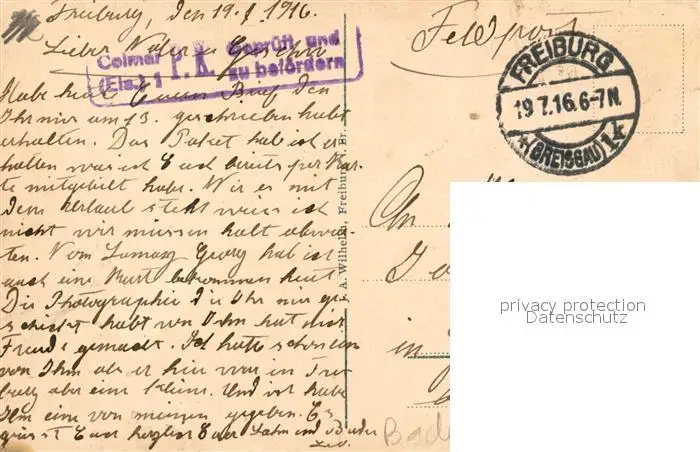 Freiburg, den 19.7.1916.
Feldpost
Lieber Vater u. Geschw.
Colmar
(Els.) 1
P. K.
Geprüft und
zu befördern
FREIBURG
19.7.16.6-7N.
(BREISGAU) 1k
Habe heut Euern Brief den
Ihr mir am 13. geschrieben habt
erhalten. Das Paket hab ich er
halten was ich Euch bereits per Kar-
te mitgeteilt habe. Wie es mit
dem Urlaub steht weis ich
nicht wir müssen halt abwar-
ten. Vom Georg hab ich
auch eine Kart bekommen heut
Die Photographie die Ihr mir ge
schickt habt von Ihm hat mich
Freude gemacht. Ich hatte schon
von Ihm als er hier war in Frei
burg aber eine kleine. Und ich habe
Ihm eine von meinen gegeben. Es
grüsst Euch herzlich Euer Sohn und Bruder
A. Wilhelm, Freiburg i. Br.
An
in
Bade
privacy protection
Datenschutz